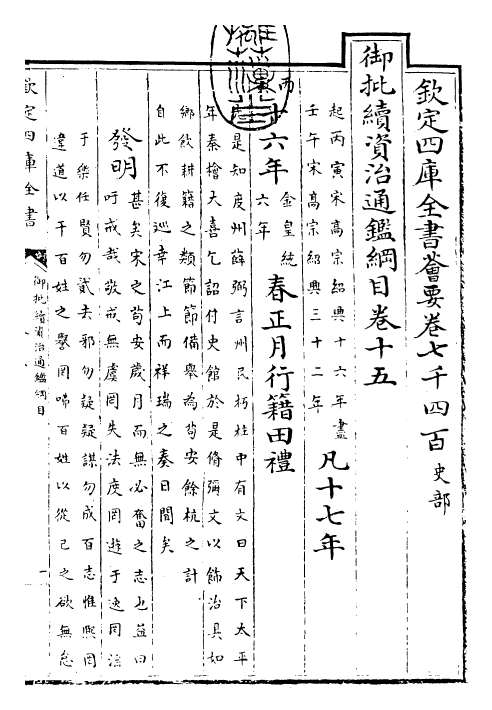 欽定四庫全書薈要卷七千四百 史部
御批續資治通鑑綱目卷十五
起丙寅宋高宗紹興十六年盡
壬午宋高宗紹興三十二年
凡十七年
丙寅十六年 金皇統六年 春正月行籍田禮
先是知虔州薛弼言州民朽柱中有文曰天下太平
年秦檜大喜乞詔付史館於是脩彌文以飾治具如
鄉飲耕籍之類節節備舉為苟安餘杭之計
自此不復巡幸江上而祥瑞之奏日聞矣
發明 甚矣宋之苟安歲月而無必奮之志也益曰
吁戒哉儆戒無虞罔失法度罔遊于逸罔淫
于樂任賢勿貳去邪勿疑疑謀勿成百志惟熙罔
違道以干百姓之譽罔咈百姓以從己之欲無怠
欽定四庫全書
御批續資治通鑑綱目
一